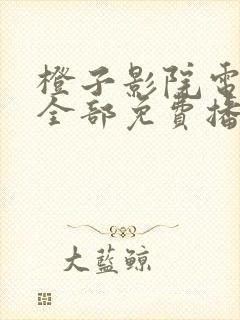 橙子影院電
全部免費播
大藍鯨